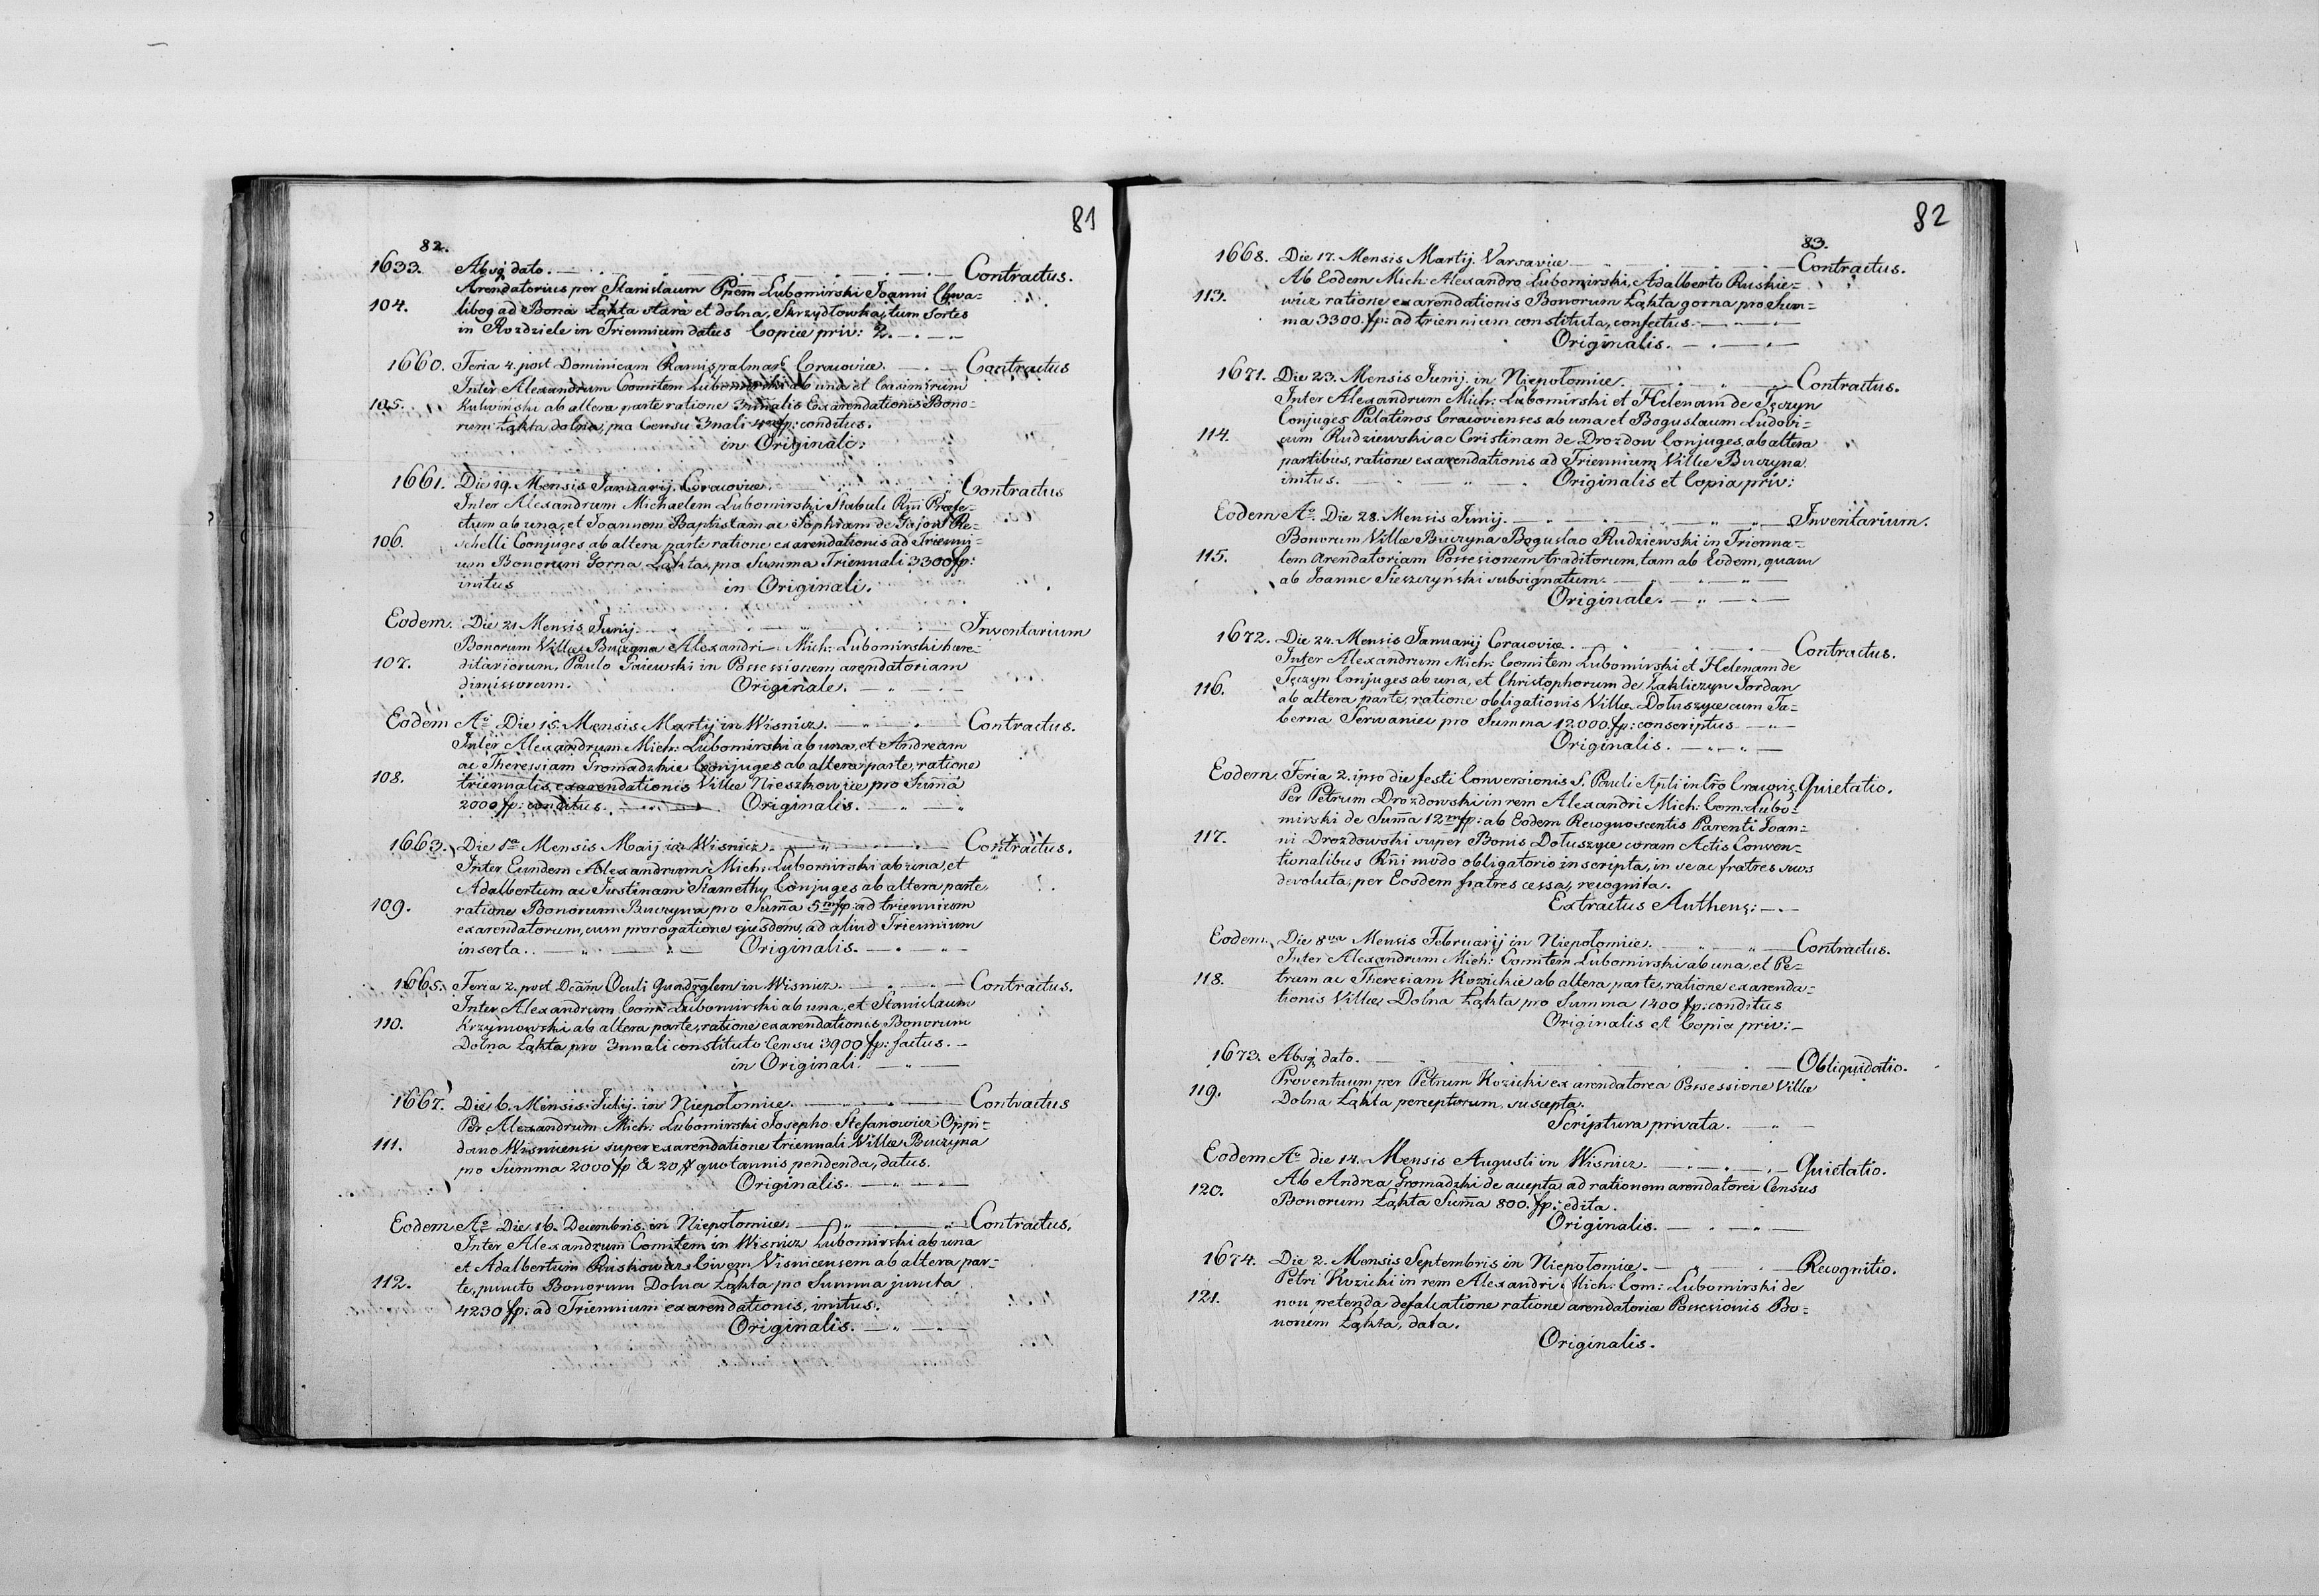 81
82.
1633. Absq dato. Contractus.
Arendatorius per Stanislaum Lubomirski Joanni Chwa-
104. libog ad Bona Łąkta stara et dolna, Skrzydłowka, tum Sortes
in Rozdziele in Triennium datus Copiæ priv: 2.
1660. Feria 4. post Dominicam Ramispalmar Cracoviæ. Contractus
Inter Alexandrum Comitem Lubomirski ab una et Casimirum
105. ab altera parte ratione 3nnalis Exarendationis Bono-
rum Łąkta dolna, pro Censu 3nali fp: conditus.
in Originale.
1661. Die 19. Mensis Januarij Cracoviæ. Contractus
Inter Alexandrum Michaelem Lubomirski Stabuli Rñi Præfe-
ctum ab una, et Joannem Baptistam ac Sophiam de Re-
106. schelli Conjuges ab altera parte ratione exarendationis ad Trienni-
um Bonorum Gorna Łąkta, pro Summa Triennali 3300 fp:
initus in Originali.
Eodem. Die 21 Mensis Junij. Inventarium
Bonorum Villæ Buczyna Alexandri Mich: Lubomirski hære-
107. ditariorum, Paulo Gaiewski in Possessionem arendatoriam
dimissorum. Originale.
Eodem Aº Die 15. Mensis Martij in Wisnicz. Contractus.
Inter Alexandrum Mich: Lubomirski ab una, et Andream
ac Theressiam Gromadzkie Conjuges ab altera parte, ratione
108. triennalis exarendationis Villæ Nieszkowice pro Sum̃a
2000 fp: conditus. Originalis.
1663. Die 1a Mensis Maij in Wisnicz. Contractus.
Inter Eundem Alexandrum Mich: Lubomirski ab una, et
Adalbertum ac Justinam Stamethy Conjuges ab altera parte,
109. ratione Bonorum Buczyna pro Sum̃a 5m fp: ad triennium
exarendatorum, cum prorogatione ejusdem, ad aliud Triennium
inserta. Originalis.
1665. Feria 2. post Dcãm Oculi Quadrglem in Wisnicz. Contractus.
Inter Alexandrum Com: Lubomirski ab una, et Stanislaum
110. Krzymowski ab altera parte, ratione exarendationis Bonorum
Dolna Łąkta pro 3nnali constituto Censu 3900 fp: factus.
in Originali.
1667. Die 6. Mensis Julij in Niepołomice. Contractus
Per Alexandrum Mich: Lubomirski Josepho Stefanowicz Oppi-
111. dano Wisnicensi super exarendatione triennali Villæ Buczyna
pro Summa 2000 fp & 20 # quotannis pendenda, datus.
Originalis.
Eodem Aº Die 16. Decembris in Niepołomice. Contractus.
Inter Alexandrum Comitem in Wisnicz Lubomirski ab una
et Adalbertum Ruskowicz Civem Visnicensem ab altera par-
112. te, puncto Bonorum Dolna Łąkta pro Summa juncta
4230 fp: ad Triennium exarendationis, initus.
Originalis.
82
83.
1668. Die 17. Mensis Martij Varsaviæ Contractus.
Ab Eodem Mich: Alexandro Lubomirski, Adalberto Ruskie-
113. wicz ratione exarendationis Bonorum Łąkta gorna pro Sum-
ma 3300. fp: ad triennium constituta, confectus.
Originalis.
1671. Die 23. Mensis Junij in Niepołomice. Contractus.
Inter Alexandrum Mich: Lubomirski et Helenam de Tęczyn
Conjuges Palatinos Cracovienses ab una et Boguslaum Ludovi-
114. cum Rudziewski ac Cristinam de Drozdow Conjuges, ab altera
partibus, ratione exarendationis ad Triennium Villæ Buczyna
initus. Originalis et Copia priv:
Eodem Aº. Die 28. Mensis Junij. Inventarium.
Bonorum Villæ Buczyna Boguslao Rudziewski in Trienna-
115. lem Arendatoriam Possesionem traditorum, tam ab Eodem, quam
ab Joanne Sieszczyński subsignatum.
Originale.
1672. Die 24. Mensis Januarij Cracoviæ. Contractus.
Inter Alexandrum Mich: Comitem Lubomirski et Helenam de
Tęczyn Conjuges ab una, et Christophorum de Zakliczyn Jordan
116. ab altera parte, ratione obligationis Villæ Dołuszyce cum Ta-
berna Serwaniec pro Summa 12000 fp: conscriptus
Originalis.
Eodem. Feria 2. ipso die festi Conversionis S. Pauli Apli in Cracovię. Quietatio.
Per Petrum Drozdowski in rem Alexandri Mich: Com: Lubo-
mirski de Sum̃a 12m fp: ab Eodem Recognoscentis Parenti Joan-
117. ni Drozdowski super Bonis Dołuszyce coram Actis Conven-
tionalibus Rñi modo obligatorio inscripta, in se ac fratres suos
devoluta, per Eosdem fratres cessa, recognita.
Extractus Authens:
Eodem. Die 8va Mensis Februarij in Niepołomice. Contractus.
Inter Alexandrum Mich: Comitem Lubomirski ab una, et Pe-
118. trum ac Theresiam Kozickie ab altera parte, ratione exarenda-
tionis Villæ Dolna Łąkta pro Summa 1400 fp: conditus
Originalis et Copia priv:
1673. Absq dato. Obliquidatio.
Proventuum per Petrum Kozicki ex arendatorea Possessione Villæ
119. Dolna Łąkta perceptorum, suscepta.
Scriptura privata.
Eodem Aº die 14. Mensis Augusti in Wisnicz. Quietatio.
Ab Andrea Gromadzki de accepta ad rationem arendatorei Census
120. Bonorum Łąkta Sum̃a 800. fp: edita.
Originalis.
1674. Die 2. Mensis Septembris in Niepołomice. Recognitio.
Petri Kozicki in rem Alexandri Mich: Com: Lubomirski de
121. non petenda defalcatione ratione arendatoriæ Possesionis Bo-
norum Łąkta, data.
Originalis.